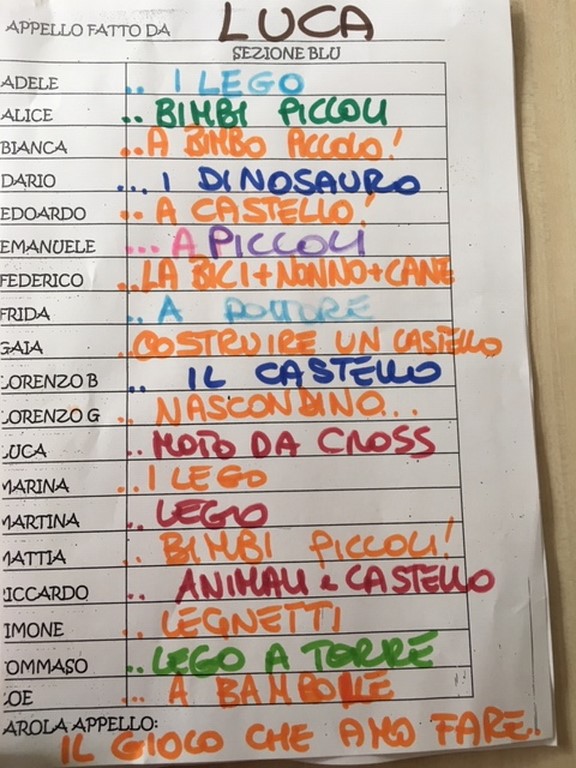 APPELLO FATTO DA LUCA
SEZIONE BLU
ADELE .. I LEGO
ALICE .. BIMBI PICCOLI
BIANCA ..A BIMBO PICCOLO!
DARIO ... I DINOSAURO
EDOARDO .. A CASTELLO!
EMANUELE ... A PICCOLI
FEDERICO ..LA BICI+NONNO+CANE
FRIDA .. A
GAIA ..COSTRUIRE UN CASTELLO
LORENZO B .. IL CASTELLO
LORENZO G .. NASCONDINO...
LUCA .. MOTO DA CROSS
MARINA ..I LEGO
MARTINA .. LEGO
MATTIA .. BIMBI PICCOLI!
RICCARDO .. ANIMALI e CASTELLO
IMONE .. LEGNETTI
OMMASO ..LEGO A TORRE
ZOE ... A BAMBOLE
AROLA APPELLO:
IL GIOCO CHE AMO FARE..